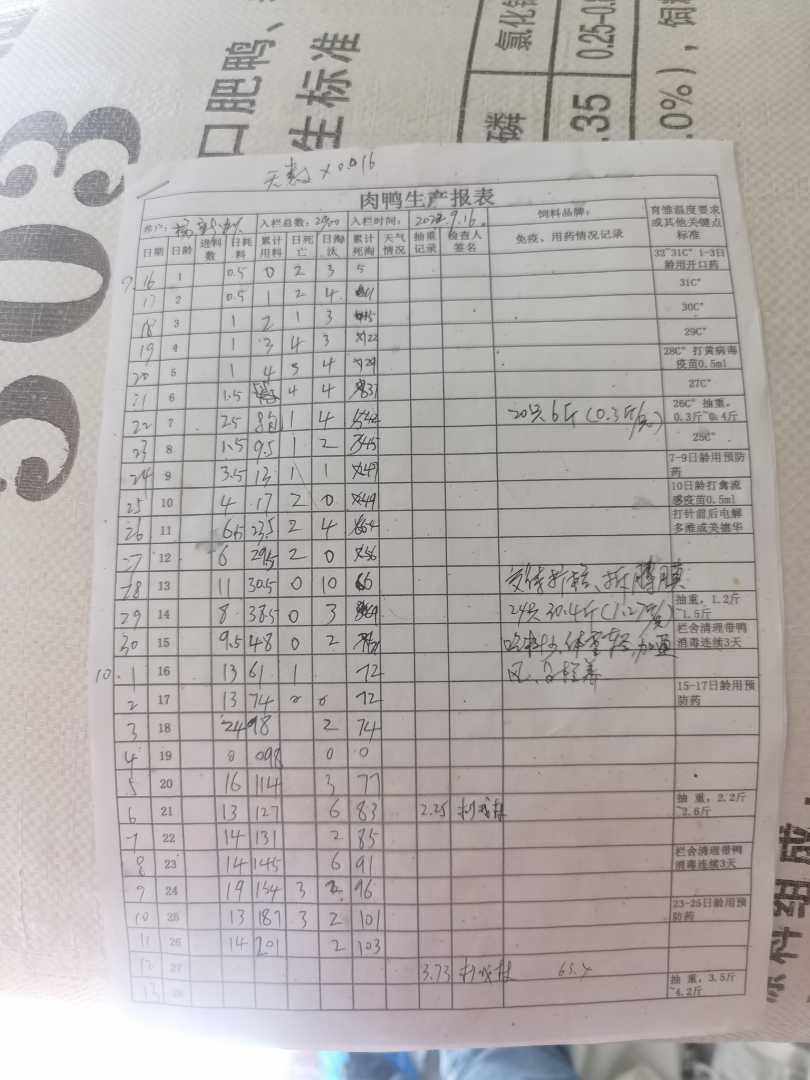 503
口肥鸭、
生标准
氯化钠
0.25-0.8
磷
.35
.0%），饲料
天数×0.016
肉鸭生产报表
养户： 入栏总数：2900 入栏时间：2022.9.16. 饲料品牌： 育雏温度要求或其他关键点标准
日期 日龄 进料数 日耗料 累计用料 日死亡 日淘汰 累计死淘 天气情况 抽重记录 检查人签名 免疫、用药情况记录
9.16 1 0.5 0 2 3 5 32~31C° 1-3日龄用开口药
17 2 0.5 1 2 4 11 31C°
18 3 1 2 1 3 15 30C°
19 4 1 3 4 3 22 29C°
20 5 1 4 3 4 29 28C° 打黄病毒疫苗0.5ml
21 6 1.5 4 4 37 27C°
22 7 25 1 4 42 20只6斤(0.3斤/只) 26C° 抽重，0.3斤~0.4斤
23 8 1.5 9.5 1 2 45 25C°
24 9 3.5 13 1 1 47 7-9日龄用预防药
25 10 4 17 2 0 49 10日龄打禽流感疫苗0.5ml
26 11 6.5 23.5 2 4 54 打针前后电解多维或美德华
27 12 6 29.5 2 0 56
28 13 11 30.5 0 10 66
29 14 8 38.5 0 3 69 24只30.4斤(1.27斤/只) 抽重，1.2斤~1.5斤
30 15 9.5 48 0 2 71 栏舍清理带鸭消毒连续3天
10.1 16 13 61 1 72
2 17 13 74 0 0 72 15-17日龄用预防药
3 18 24 98 2 74
4 19 0 098 0 0
5 20 16 114 3 77
6 21 13 127 6 83 2.25 抽 重，2.2斤~2.6斤
7 22 14 131 2 85
8 23 14 145 6 91 栏舍清理带鸭消毒连续3天
9 24 19 154 3 2 96
10 25 13 187 3 2 101 23-25日龄用预防药
11 26 14 201 2 103
12 27 3.73 63.4
13 28 抽 重，3.5斤~4.2斤